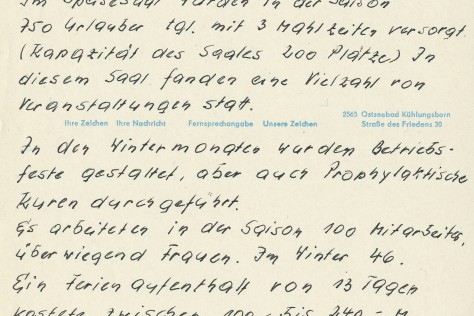 Im Speisesaal wurden in der Saison
750 Urlauber tgl. mit 3 Mahlzeiten versorgt.
(Kapazität des Saales 200 Plätze) In
diesem Saal fanden eine Vielzahl von
Veranstaltungen statt.
Ihre Zeichen Ihre Nachricht Fernsprechangabe Unsere Zeichen 2565 Ostseebad Kühlungsborn
Straße des Friedens 30
In den Wintermonaten wurden Betriebs-
feste gestaltet, aber auch Prophylaktische
Kuren durchgeführt.
Es arbeiteten in der Saison 100 Mitarbeiter,
überwiegend Frauen. Im Winter 46.
Ein Ferienaufenthalt von 13 Tagen
kostete zwischen 100,- bis 240,- M